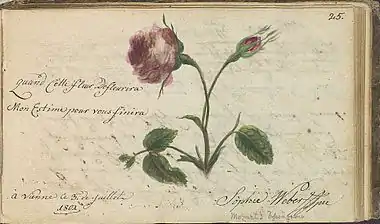 25.
Quand Cette fleur Refleurira
Mon Estime pour vous finira
à Vienne le 3. de Juillet
1801
Sophie Weber
Mozart's